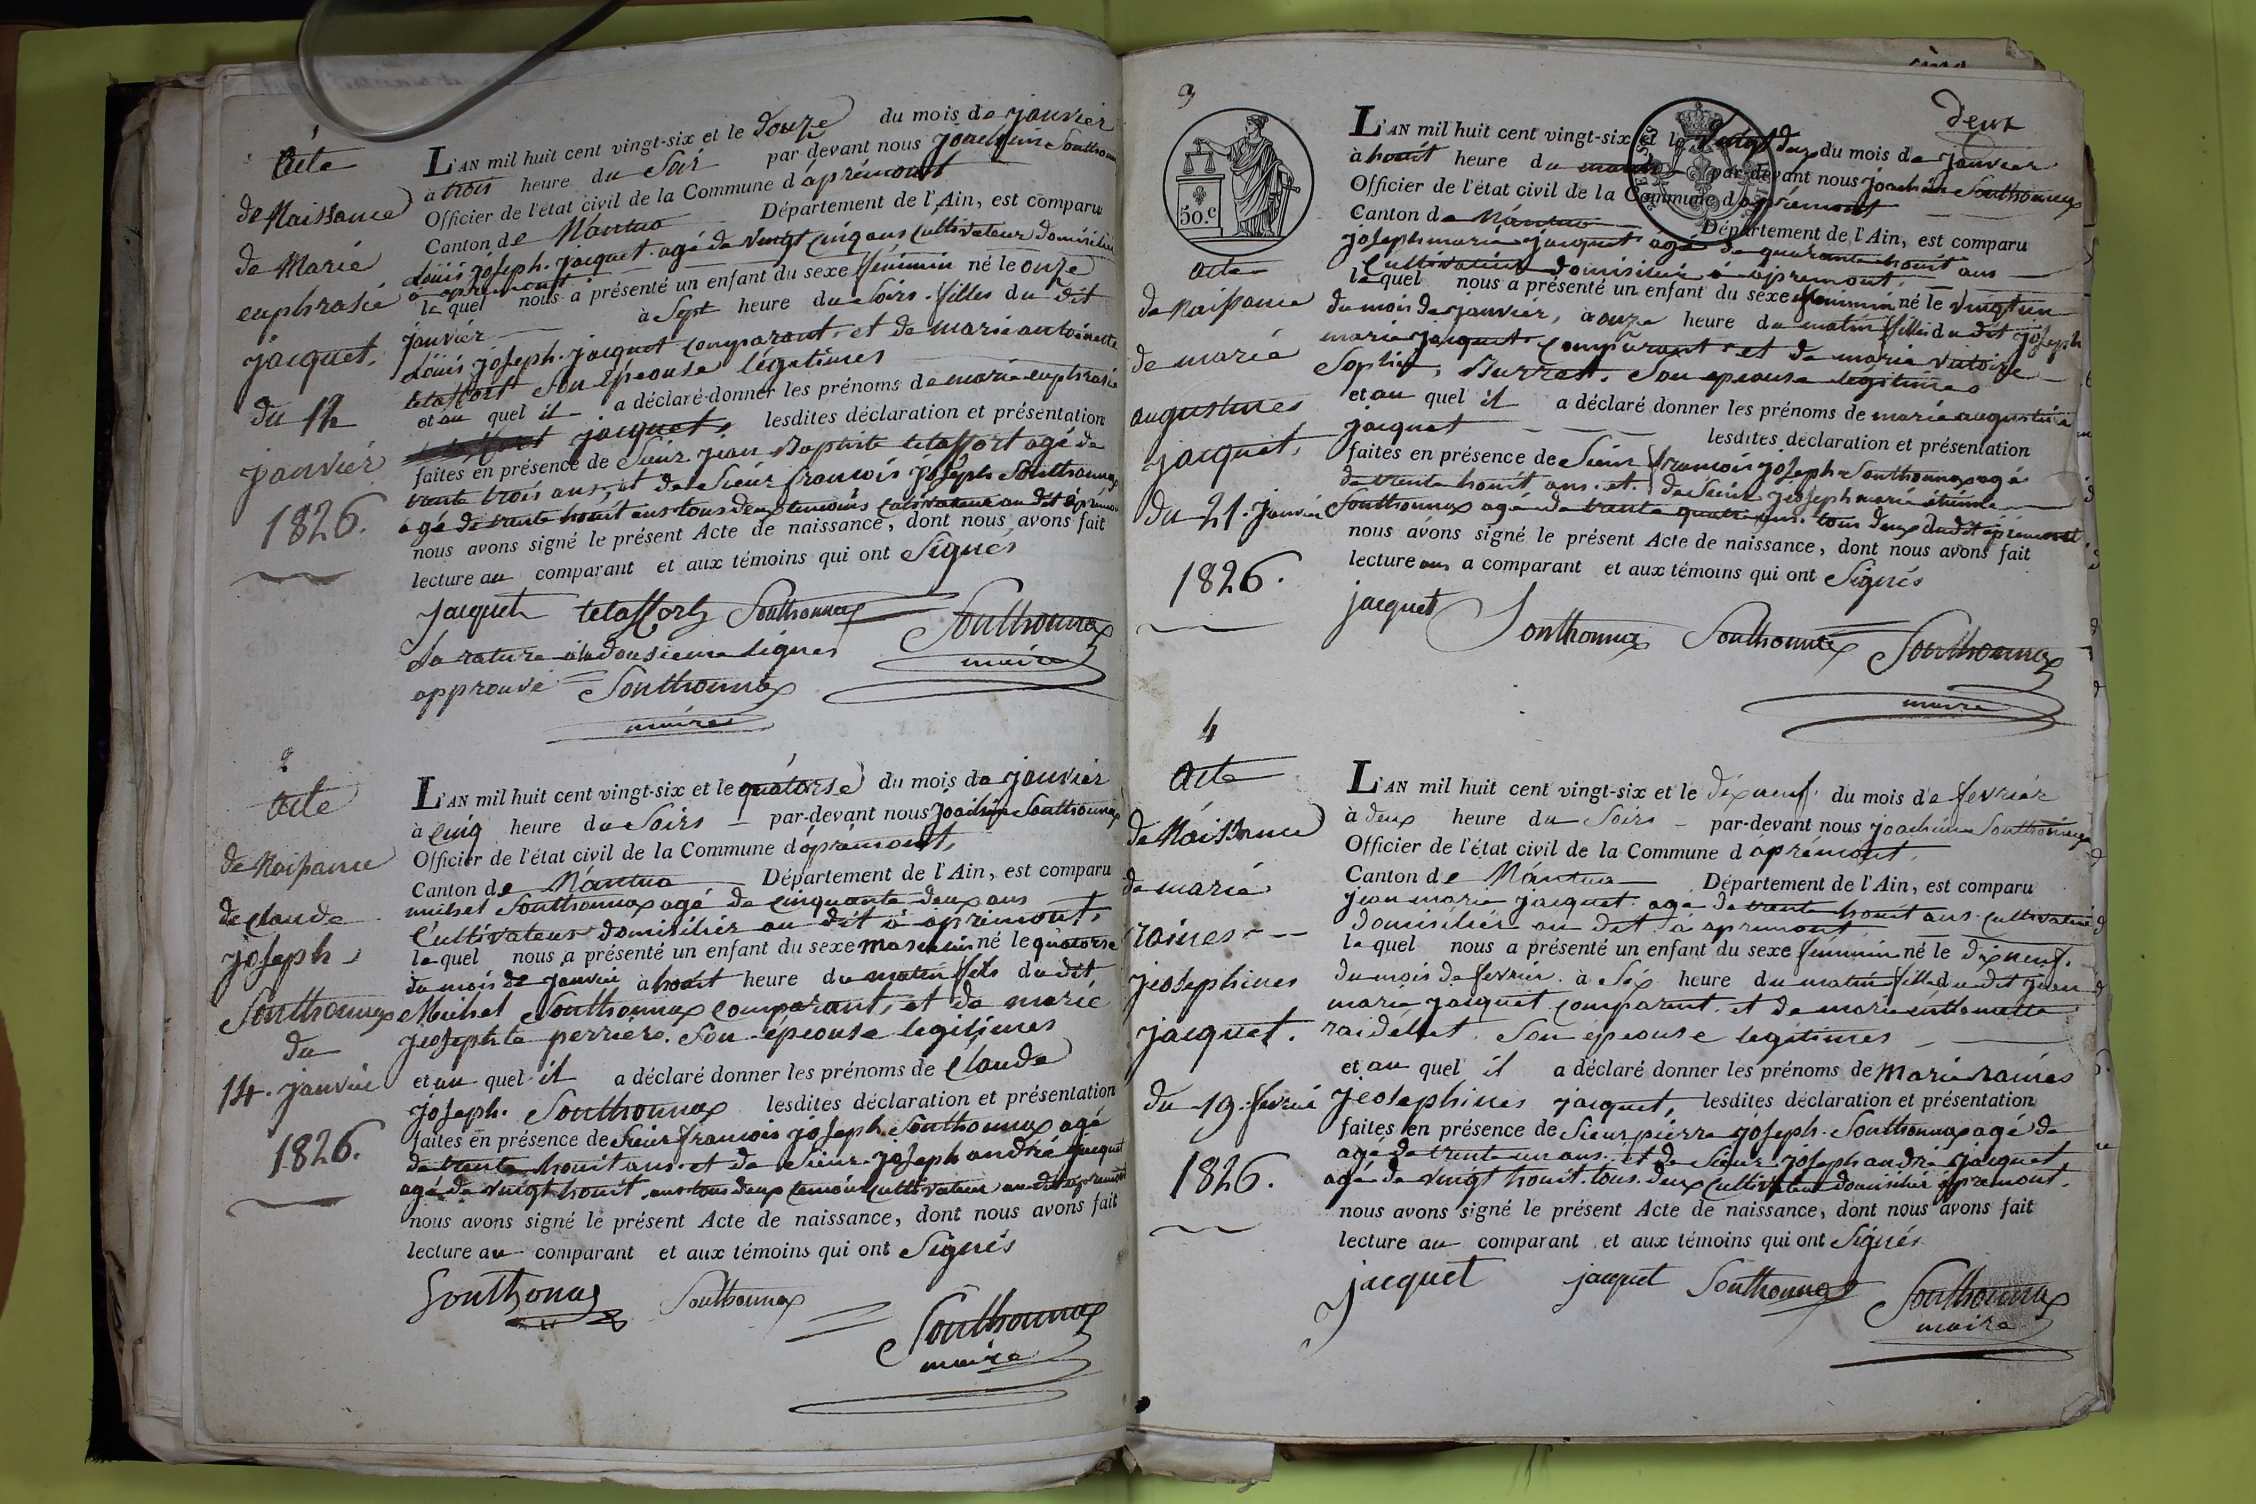 1
Acte
de Naissance
de Marie
euphrasie
jacquet.
du 12
janvier
1826.
L'AN mil huit cent vingt-six et le douze du mois de janvier
à trois heure du Soir par devant nous joachim Southonnax
Officier de l'état civil de la Commune d'aprémont
Canton de Nantua Département de l'Ain, est comparu
Louis joseph. jacquet. agé de vingt cinq ans Cultivateur domicilié
à apremont
le quel nous a présenté un enfant du sexe féminin né le onze
janvier à Sept heure du Soirs. filles du dit
Louis joseph. jacquet comparant. et de marie antoinette
telaffort Son épeouse légitimes
et au quel il a déclaré donner les prénoms de marie euphrasie
jacquet, lesdites déclaration et présentation
faites en présence de Sieur jean Baptiste telaffort agé de
trente trois ans, et de Sieur francois joseph Southonnax
agé de trente houit ans tous deux temoins Cultivateur au dit aprémont
nous avons signé le présent Acte de naissance, dont nous avons fait
lecture au comparant et aux témoins qui ont Signés
jacquet telaffort Southonnax Southonnax
maire
La rature à la dousieme Lignes
approuvé Southonnax
maire
2
Acte
de Naissance
de Claude
joseph
Southonnax
du
14. janvier
1826.
L'AN mil huit cent vingt-six et le quatorse du mois de janvier
à Cinq heure du Soirs par-devant nous joachim Southonnax
Officier de l'état civil de la Commune d'aprémont,
Canton de Nantua Département de l'Ain, est comparu
michel Southonnax agé de Cinquante deux ans
Cultivateur domisiliér au dit à aprémont,
le quel nous a présenté un enfant du sexe masculin né le quatorse
du mois de janvier à houit heure du matin fils du dit
Michel Southonnax comparant, et de marie
jeosephte perriere. Son épeouse legitimes
et au quel il a déclaré donner les prénoms de Claude
joseph. Southonnax lesdites déclaration et présentation
faites en présence de Sieur francois joseph Southonnax agé
de trente houit ans. et de Sieur. joseph andré jacquet
agé de vingt houit. ans tous deux temoin Cultivateur au dit apremont
nous avons signé le présent Acte de naissance, dont nous avons fait
lecture au comparant et aux témoins qui ont Signés
Southonax Southonnax Southonnax
maire
3
deux
50.c
acte
de Naissance
de marie
augustines
jacquet,
du 21. janvier
1826.
L'AN mil huit cent vingt-six et le vingt deux du mois de janvier
à houit heure du matin par-devant nous joachim Southonnax
Officier de l'état civil de la Commune d'aprémont
Canton de Nantua Département de l'Ain, est comparu
joseph marie jacquet agé de quarante houit ans
Cultivateur domisiliér à apremont.
le quel nous a présenté un enfant du sexe feminin né le vingt un
du mois de janvier, à onze heure du matin filles du dit joseph
marie jacquet. comparant. et de marie
Sophie, Burret. Son epeouse legitimes
et au quel il a déclaré donner les prénoms de marie augustine
jacquet lesdites déclaration et présentation
faites en présence de Sieur francois joseph Southonnax agé
de trente houit ans. et. de Sieur jeoseph marie étienne
Southonnax agé de trente quatre ans. tous deux du dit aprémont
nous avons signé le présent Acte de naissance, dont nous avons fait
lecture au a comparant et aux témoins qui ont Signés
jacquet Southonnax Southonnax Southonnax
maire
4
Acte
de Naissance
de marie
raines
jeosephines
jacquet.
du 19. fevrier
1826.
L'AN mil huit cent vingt-six et le dix neuf. du mois de fevrier
à deux heure du Soirs par-devant nous joachim Southonnax
Officier de l'état civil de la Commune d'aprémont.
Canton de Nantua Département de l'Ain, est comparu
jean marie jacquet. agé de trente houit ans. Cultivateur
domisiliér au dit à apremont
le quel nous a présenté un enfant du sexe feminin né le dix neuf.
du mois de fevrier. à Six heure du matin fille du dit jean
marie jacquet comparent. et de marie enthoinette
raidélet. Son epeouse legitimes
et au quel il a déclaré donner les prénoms de Marie raines
jeosephines jacquet, lesdites déclaration et présentation
faites en présence de Sieur pierre joseph. Southonnax agé de
agé de trente un ans. et de Sieur. joseph andré jacquet
agé de vingt houit. tous. deux Cultivateur domisilié apremont.
nous avons signé le présent Acte de naissance, dont nous avons fait
lecture au comparant et aux témoins qui ont Signés
jacquet jacquet Southonnax Southonnax
maire